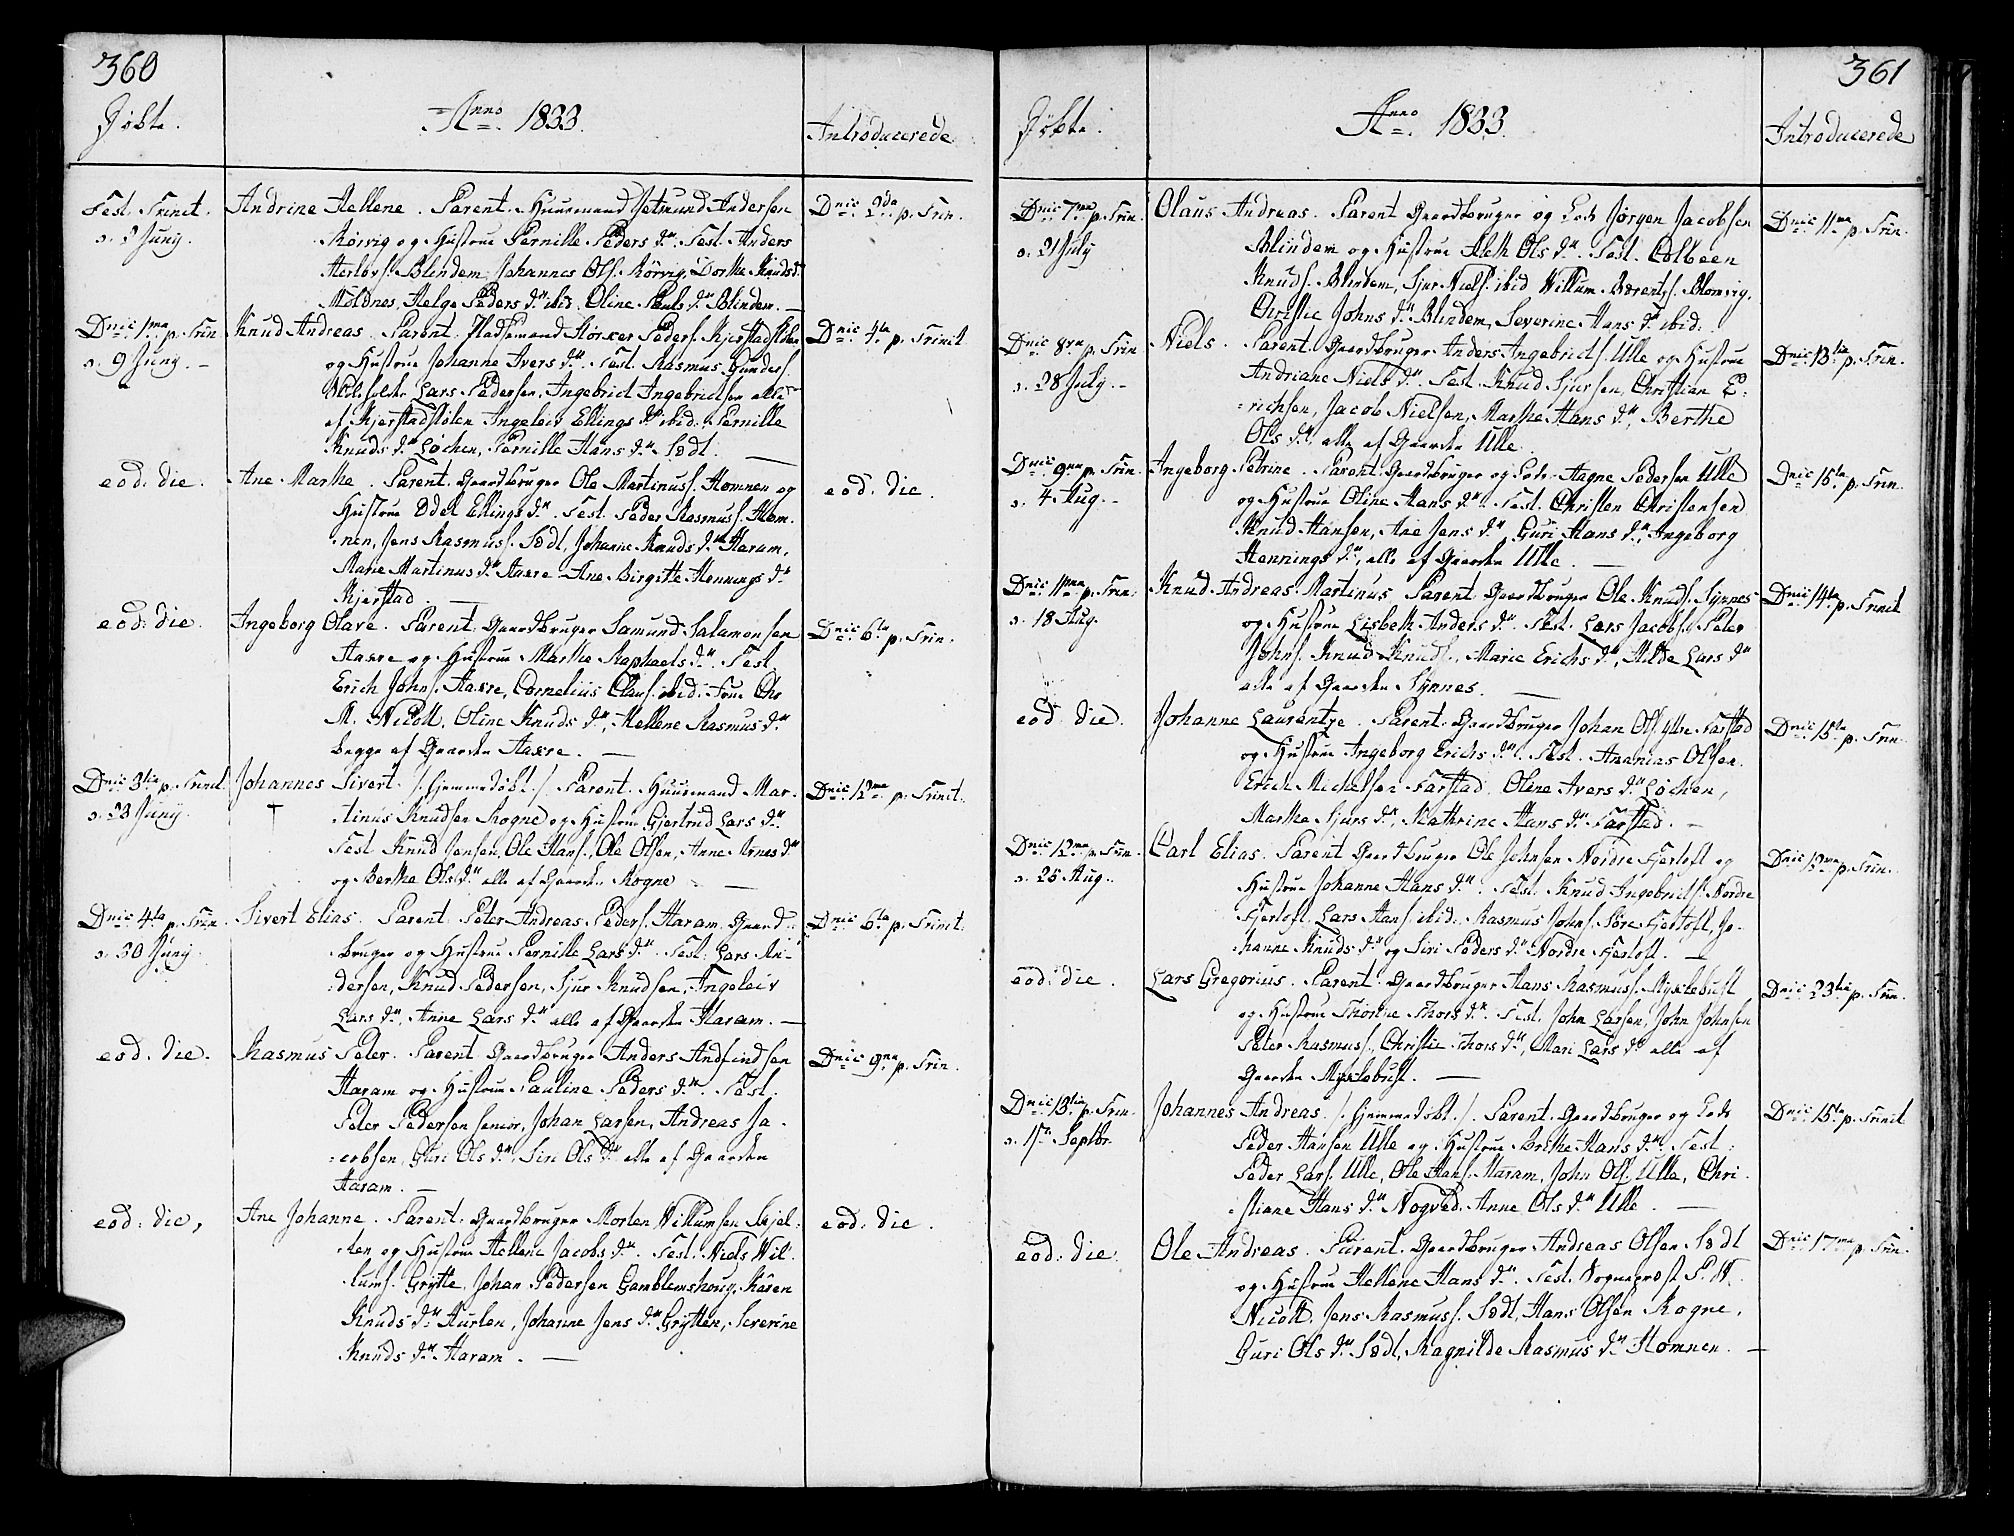 360
Døbte.
Anno 1833.
Introducerede
Fest. Trinit.
d. 2 Juny.
Andrine Hellene. Parent. Huusmand Jetmund Andersen
Rörvig og Hustrue Pernille Peders Dr. Test. Anders
Herlovs. Blindem, Johannes Ols. Rörvig, Dorthe Knuds Dr
Moldnes, Helge Peders Dr ibid. Oline Pouls Dr Blindem. —
Dnic 2da p. Trin.
Dnic 1ma p. Trin
d. 9 Juny. —
Knud Andreas. Parent. Pladsemand Störker Peders. Kjerstadstölen
og Hustrue Johanne Ivers Dr. Test. Rasmus Gunders.
Lars Pedersen, Ingebrict Ingebrictsen alle
af Kjerstadstölen Ingeleiv Ellings Dr ibid. Pernille
Knuds Dr Löchen, Pernille Hans Dr Södt. —
Dnic 4ta p. Trinit
eod. die.
Ane Marthe. Parent. Gaardbruger Ole Martinuss. Homnen og
Hustrue Odel Ellings Dr. Test. Peder Rasmuss. Hom-
nen, Jens Rasmuss. Södt, Johanne Knuds Dr Haram,
Marie Martinus Dr Aakre Ane Birgitte Hennings Dr
Kjerstad. —
eod. die.
eod. die.
Ingeborg Olave. Parent. Gaardbruger Samund Salamonsen
Aakre og Hustrue Marthe Raphaels Dr. Test.
Erich Johns. Aakre, Cornelius Claus. ibid. Frue Chr
M. Nicoll, Oline Knuds Dr, Hellene Rasmus Dr
begge af Gaarden Aakre. —
Dnic 6ta p. Trin.
Dnic 3tia p. Trinit
d. 23 Juny.
Johannes Sivert /: Hjemmedöbt :/ Parent. Huusmand Mar-
tinus Knudsen Rogne og Hustrue Gjertrud Lars Dr.
Test. Knud Jensen, Ole Hans., Ole Olsen, Anne Arnes Dr
og Berthe Ols Dr alle af Gaarden Rogne. —
Dnic 12ma p. Trinit.
Dnic 4ta p. Trin.
d. 30 Juny.
Sivert Elias. Parent. Peter Andreas Peders. Haram Gaard-
bruger og Hustrue Pernille Lars Dr. Test. Lars An-
dersen, Knud Pedersen, Sjur Knudsen, Ingeleiv
Lars Dr, Anne Lars Dr alle af Gaarden Haram. —
Dnic 6ta p. Trinit.
eod. die.
Rasmus Peter. Parent. Gaardbruger Anders Andfindsen
Haram og Hustrue Pauline Peders Dr. Test.
Peter Pedersen senior, Johan Larsen, Andreas Ja-
cobsen, Guri Ols Dr, Siri Ols Dr alle af Gaarden
Haram. —
Dnic 9na p. Trin.
eod. die,
Ane Johanne. Parent. Gaardbruger Morten Willumsen Skjel-
ten og Hustrue Hellene Jacobs Dr. Test. Niels Wil-
lums. Grytte, Johan Pedersen Gamblemshoug, Karen
Knuds Dr Hurlen, Johanne Jens Dr Grytten, Severine
Knuds Dr Haram. —
eod. die.
361
Døbte.
Anno 1833.
Introducerede
Dnic 7ma p. Trin.
d. 21 July
Olaus Andreas. Parent. Gaardbruger og Lods Jörgen Jacobsen
Blindem og Hustrue Aleth Ols Dr. Test. Colbeen
Knuds. Blindem, Sjur Niels. ibid Willum Berents. Blomvig,
Christie Johns Dr Blindem, Severine Hans Dr ibid.
Dnic 11ma p. Trin.
Dnic 8va p. Trin
d. 28 July. —
Niels. Parent. Gaardbruger Anders Ingebricts. Ulle og Hustrue
Andriane Niels Dr. Test. Knud Sjursen, Christian E-
richsen, Jacob Nielsen, Marthe Hans Dr, Berthe
Ols Dr alle af Gaarden Ulle.
Dnic 13tia p. Trin.
Dnic 9na p. Trin.
d. 4 Aug. —
Ingeborg Petrine. Parent. Gaardbruger og Lods Hagne Pedersen Ulle
og Hustrue Oline Hans Dr. Test. Christen Christensen
Knud Hansen, Ane Jens Dr, Guri Hans Dr, Ingeborg
Hennings Dr, alle af Gaarden Ulle. —
Dnic 15ta p. Trin.
Dnic 11ma p. Trin.
d. 18 Aug.
Knud Andreas Martinus. Parent. Gaardbruger Ole Knuds. Synnes
og Hustrue Lisbeth Anders Dr. Test. Lars Jacobs. Peter
Johns. Knud Knuds., Marie Erichs Dr, Hilde Lars Dr
alle af Gaarden Synnes. —
Dnic 14ta p. Trinit
eod. die.
Johanne Laurentze. Parent. Gaardbruger Johan Ols. ytre Farstad
og Hustrue Ingeborg Erichs Dr. Test. Ananias Olsen
Erich Michelsen Farstad, Oline Ivers Dr Löchen,
Marthe Sjurs Dr, Kathrine Hans Dr Farstad. —
Dnic 15ta p. Trin.
Dnic 12ma p. Trin.
d. 25 Aug.
Carl Elias. Parent. Gaardbruger Ole Johnsen Nordre Fjertoft og
Hustrue Johanne Hans Dr. Test. Knud Ingebricts. Nordre
Fjertoft. Lars Hans. ibid. Rasmus Johns. Söre Fjertoft, Jo-
hanne Knuds Dr og Siri Peders Dr Nordre Fjertoft. —
Dnic 13tia p. Trin.
eod. die.
Lars Gregorius. Parent. Gaardbruger Hans Rasmuss. Myklebust
og Hustrue Thorine Thors Dr. Test. John Larsen, John Johnsen
Peter Rasmuss., Christie Thors Dr, Mari Lars Dr alle af
Gaarden Myklebust. —
Dnic 23tia p. Trin.
Dnic 13tia p. Trin.
d. 1st Septbr.
Johannes Andreas. /: Hjemmedöbt :/. Parent. Gaardbruger og Lods
Peder Hansen Ulle og Hustrue Brithe Hans Dr. Test.
Peder Lars. Ulle, Ole Hans. Haram, John Ols. Ulle, Chri-
stiane Hans Dr Nogved. Anne Ols Dr Ulle. —
Dnic 15ta p. Trinit
eod. die.
Ole Andreas. Parent. Gaardbruger Andreas Olsen Södt
og Hustrue Hellene Hans Dr. Test. Sogneprest P. W.
Nicoll, Jens Rasmuss. Södt, Hans Olsen Rogne,
Guri Ols Dr Södt, Ragnilde Rasmus Dr Homnen. —
Dnic 17ma p. Trin.